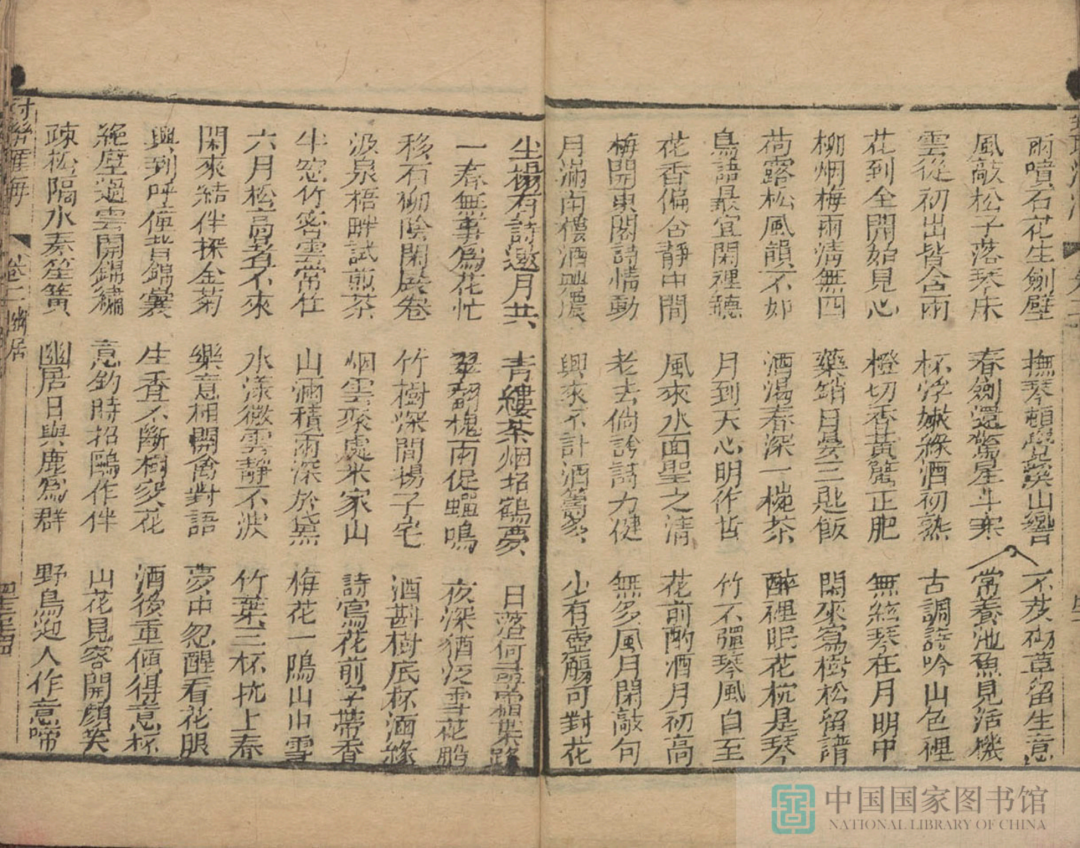 雨噴石花生劍壁 撫琴頓覺溪山響 不芟砌草留生意
風敲松子落琴床 春劍還驚星斗寒 常養池魚見活機
雲從初出皆含雨 杯浮嫩綠酒初熟 古調謾吟山色裡
花到全開始見心 橙切香黃蟹正肥 無絃琴在月明中
柳烟梅雨清無四 藥銷日晏三匙飯 閑來寫樹松留譜
荷露松風韻不如 酒渴春深一椀茶 醉裡眠花枕是琴
鳥語最宜閑裡聽 月到天心明作哲 竹不彈琴風自至
花香偏合靜中間 風來水面聖之清 花前酌酒月初高
梅開東閣詩情動 老去倘誇詩力健 無多風月閑敲句
月滿南樓酒興濃 興來不計酒籌多 少有壺觴可對花
坐榻有詩邀月共 青縷茶烟招鶴夢 日落何
一春無事為花忙 翠翻槐雨促蟬鳴 夜深猶泛雪花船
移石柳陰閑展卷 竹樹深間揚子宅 酒斟樹底杯涵綠
汲泉梧畔試煎茶 烟雲聚處米家山 詩寫花前字帶香
半窓竹密雲常在 山涵積雨深於黛 梅花一隖山中雪
六月松高暑不來 水漾微雲靜不波 竹葉三杯枕上春
閑來結伴探金菊 樂意相關禽對語 夢中忽醒看花眼
興到呼僮背錦囊 生香不斷樹交花 酒後重傾得意杯
絕壁過雲開錦繡 意釣時招鷗作伴 山花見客開顏笑
疎松隔水奏笙簧 幽居日與鹿為群 野鳥迎人作意啼
對聯匯海 卷二 幽居
中国国家图书馆
NATIONAL LIBRARY OF CHINA